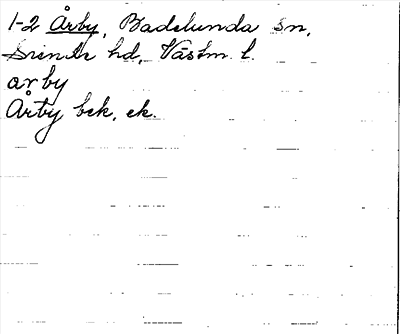 1-2 Årby, Badelunda sn,
Siende hd, Västm. l.
arby
Årby bek. ek.